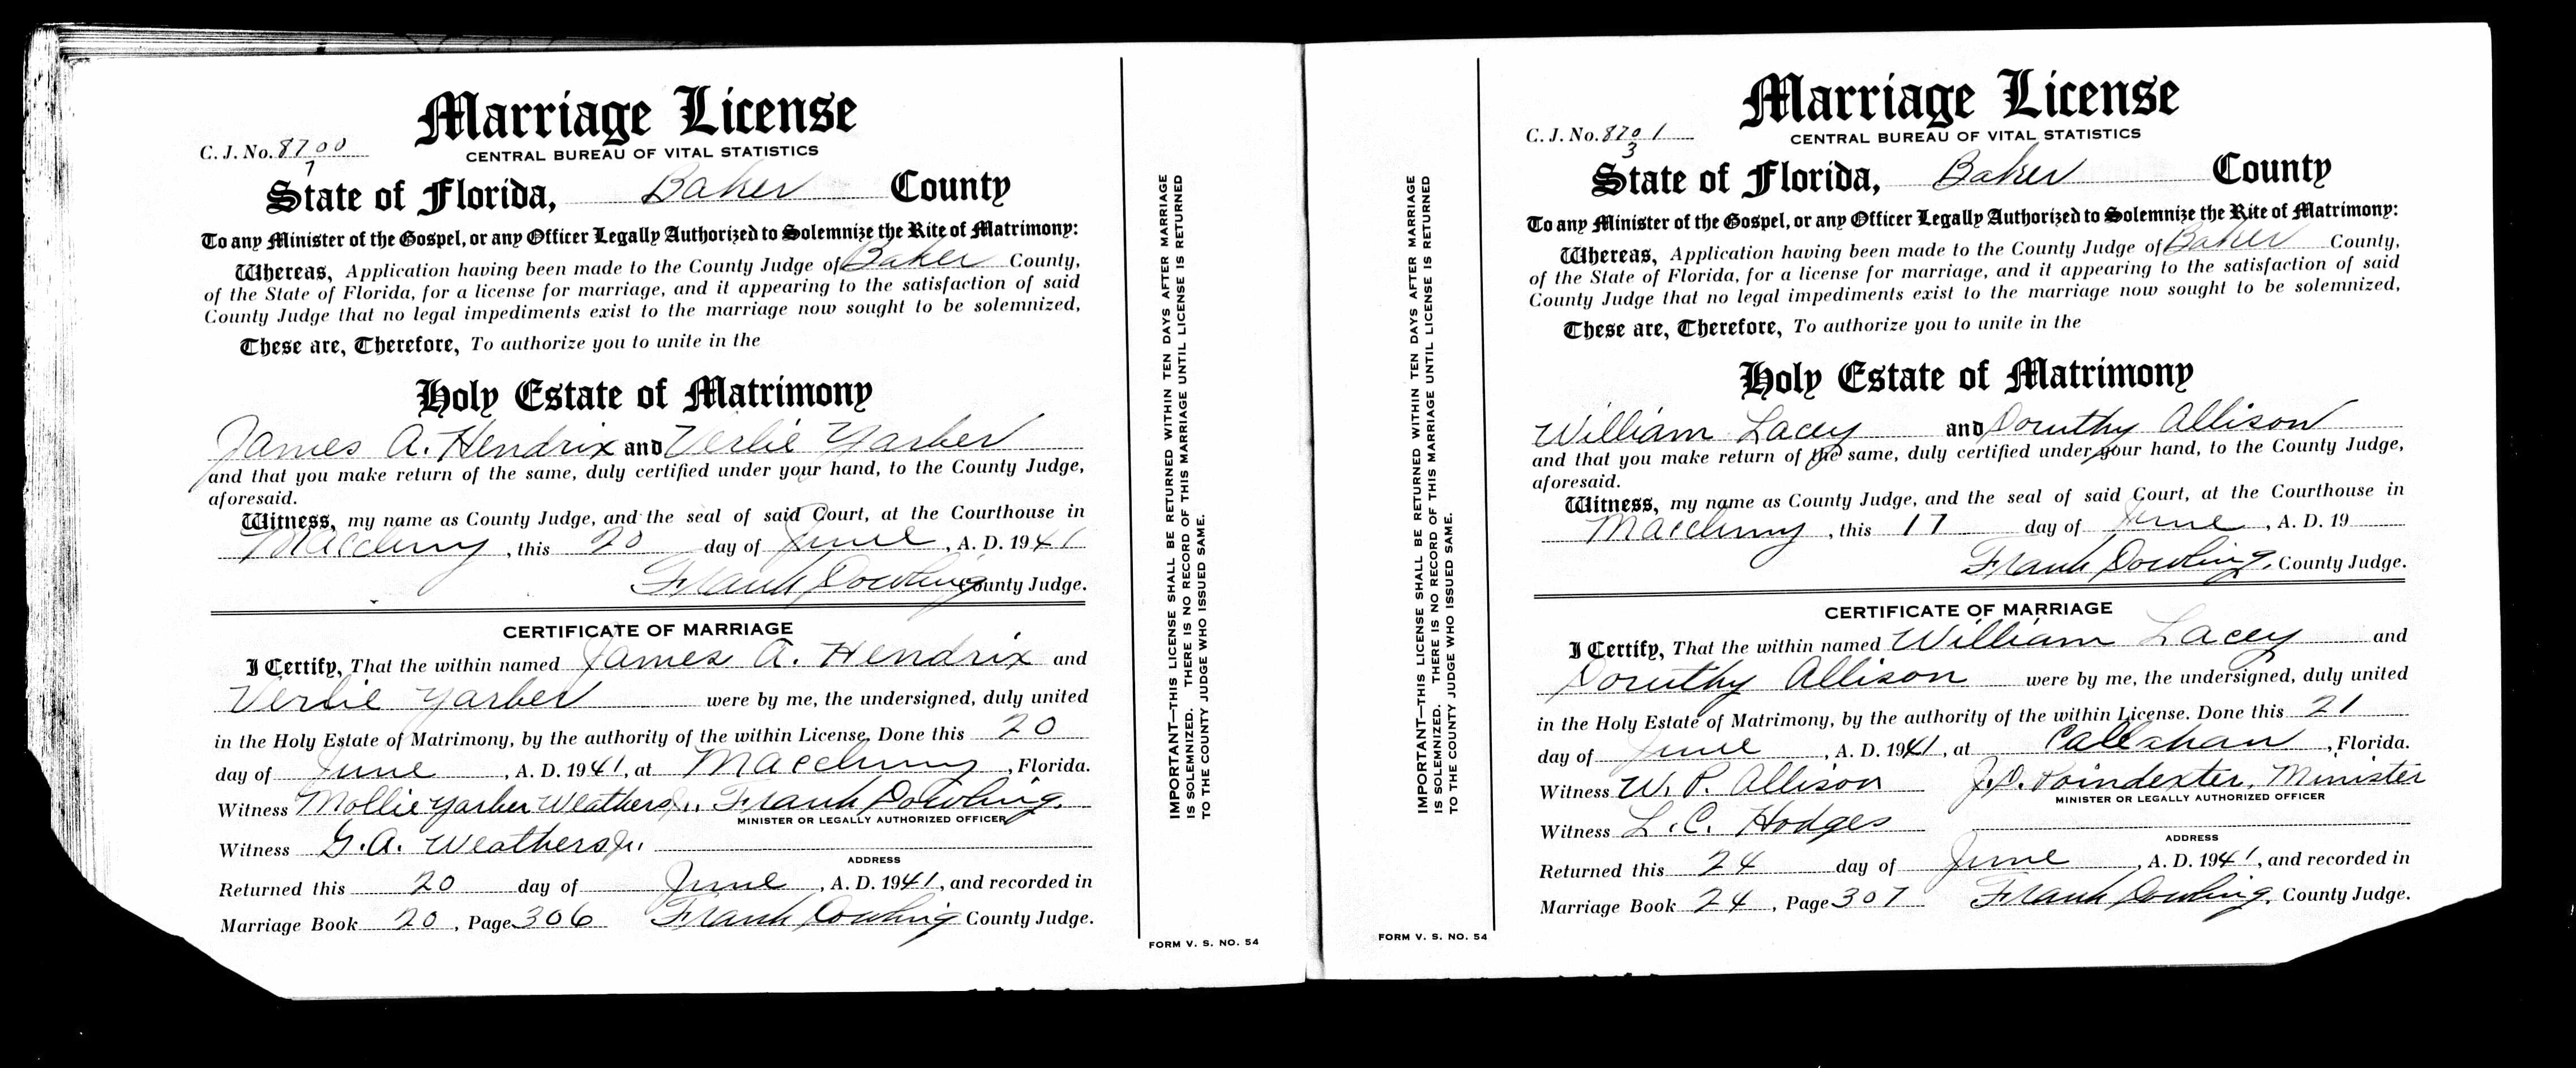 Marriage License
C. J. No. 8700
CENTRAL BUREAU OF VITAL STATISTICS
7
State of Florida, Baker County
To any Minister of the Gospel, or any Officer Legally Authorized to Solemnize the Rite of Matrimony:
Whereas, Application having been made to the County Judge of Baker County,
of the State of Florida, for a license for marriage, and it appearing to the satisfaction of said
County Judge that no legal impediments exist to the marriage now sought to be solemnized,
These are, Therefore, To authorize you to unite in the
Holy Estate of Matrimony
James A. Hendrix and Verlie Yarber
and that you make return of the same, duly certified under your hand, to the County Judge,
aforesaid.
Witness, my name as County Judge, and the seal of said Court, at the Courthouse in
Macclenny, this 20 day of June, A. D. 1941
Frank Dowling County Judge.
CERTIFICATE OF MARRIAGE
I Certify, That the within named James A. Hendrix and
Verlie Yarber were by me, the undersigned, duly united
in the Holy Estate of Matrimony, by the authority of the within License. Done this 20
day of June, A. D. 1941, at Macclenny, Florida.
Witness Mollie Yarber Weathers Frank Dowling
MINISTER OR LEGALLY AUTHORIZED OFFICER
Witness G. A. Weathers Jr.
ADDRESS
Returned this 20 day of June, A. D. 1941, and recorded in
Marriage Book 20, Page 306 Frank Dowling County Judge.
IMPORTANT—THIS LICENSE SHALL BE RETURNED WITHIN TEN DAYS AFTER MARRIAGE
IS SOLEMNIZED. THERE IS NO RECORD OF THIS MARRIAGE UNTIL LICENSE IS RETURNED
TO THE COUNTY JUDGE WHO ISSUED SAME.
FORM V. S. NO. 54
Marriage License
C. J. No. 8701
CENTRAL BUREAU OF VITAL STATISTICS
3
State of Florida, Baker County
To any Minister of the Gospel, or any Officer Legally Authorized to Solemnize the Rite of Matrimony:
Whereas, Application having been made to the County Judge of Baker County,
of the State of Florida, for a license for marriage, and it appearing to the satisfaction of said
County Judge that no legal impediments exist to the marriage now sought to be solemnized,
These are, Therefore, To authorize you to unite in the
Holy Estate of Matrimony
William Lacey and Doruthy Allison
and that you make return of the same, duly certified under your hand, to the County Judge,
aforesaid.
Witness, my name as County Judge, and the seal of said Court, at the Courthouse in
Macclenny, this 17 day of June, A. D. 19
Frank Dowling, County Judge.
CERTIFICATE OF MARRIAGE
I Certify, That the within named William Lacey and
Doruthy Allison were by me, the undersigned, duly united
in the Holy Estate of Matrimony, by the authority of the within License. Done this 21
day of June, A. D. 1941, at Callahan, Florida.
Witness W. P. Allison J. D. Poindexter, Minister
MINISTER OR LEGALLY AUTHORIZED OFFICER
Witness L. C. Hodges
ADDRESS
Returned this 24 day of June, A. D. 1941, and recorded in
Marriage Book 24, Page 307 Frank Dowling, County Judge.
IMPORTANT—THIS LICENSE SHALL BE RETURNED WITHIN TEN DAYS AFTER MARRIAGE
IS SOLEMNIZED. THERE IS NO RECORD OF THIS MARRIAGE UNTIL LICENSE IS RETURNED
TO THE COUNTY JUDGE WHO ISSUED SAME.
FORM V. S. NO. 54